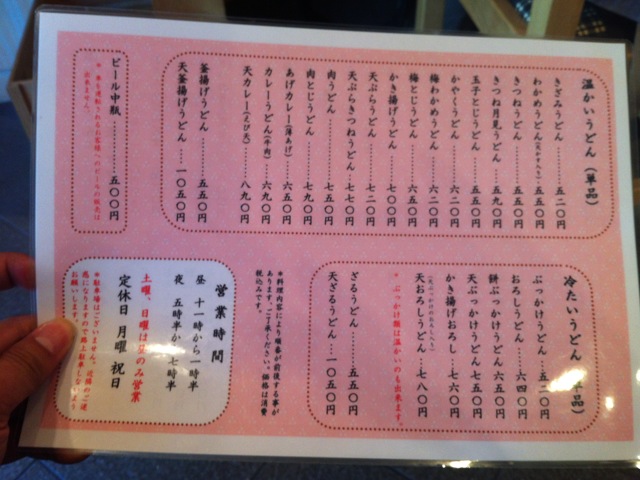 温かいうどん（単品）
きざみうどん………五二〇円
わかめうどん
きつねうどん………五五〇円
きつね月見うどん……五九〇円
玉子とじうどん………五五〇円
かやくうどん………六二〇円
梅わかめうどん………六二〇円
梅とじうどん………六五〇円
かき揚げうどん………七〇〇円
天ぷらうどん………七二〇円
天ぷらきつねうどん…七七〇円
肉うどん………七五〇円
肉とじうどん………七九〇円
あげカレー（薄あげ）…六五〇円
カレーうどん（牛肉）…六九〇円
天カレー（えび天）……八九〇円
釜揚げうどん………五五〇円
天釜揚げうどん……一〇五〇円
ビール中瓶………五〇〇円
＊車を運転されるお客様へのビールの販売は
出来ません。
冷たいうどん（単品）
ぶっかけうどん…五二〇円
おろしうどん……六四〇円
餅ぶっかけうどん六五〇円
天ぶっかけうどん七五〇円
かき揚げおろし…七六〇円
天おろしうどん…七八〇円
＊ぶっかけ類は温かいのも出来ます。
ざるうどん………五五〇円
天ざるうどん…一〇五〇円
＊料理内容により順番が前後する事が
あります。ご了承ください。価格は消費
税込みです。
営業時間
昼　十一時から一時半
夜　五時半から七時半
土曜、日曜は昼のみ営業
定休日　月曜　祝日
＊駐車場はございません。近隣のご迷
惑になりますので路上駐車しないよう
お願いします。